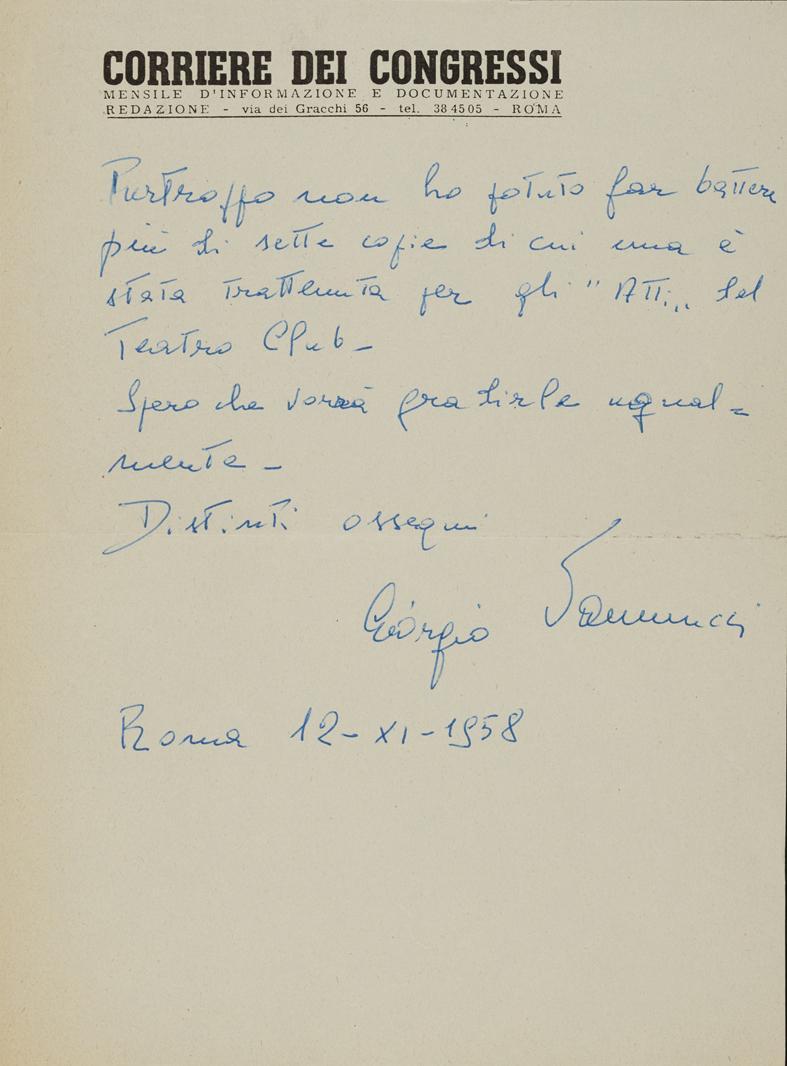 CORRIERE DEI CONGRESSI
MENSILE D'INFORMAZIONE E DOCUMENTAZIONE
REDAZIONE - via dei Gracchi 56 - tel. 384505 - ROMA
Purtroppo non ho potuto far battere
più di sette copie di cui una è
stata trattenuta per gli "Atti" del
Teatro Club -
Spero che vorrà gradirle ugual=
mente -
Distinti ossequi
Giorgio
Roma 12-XI-1958